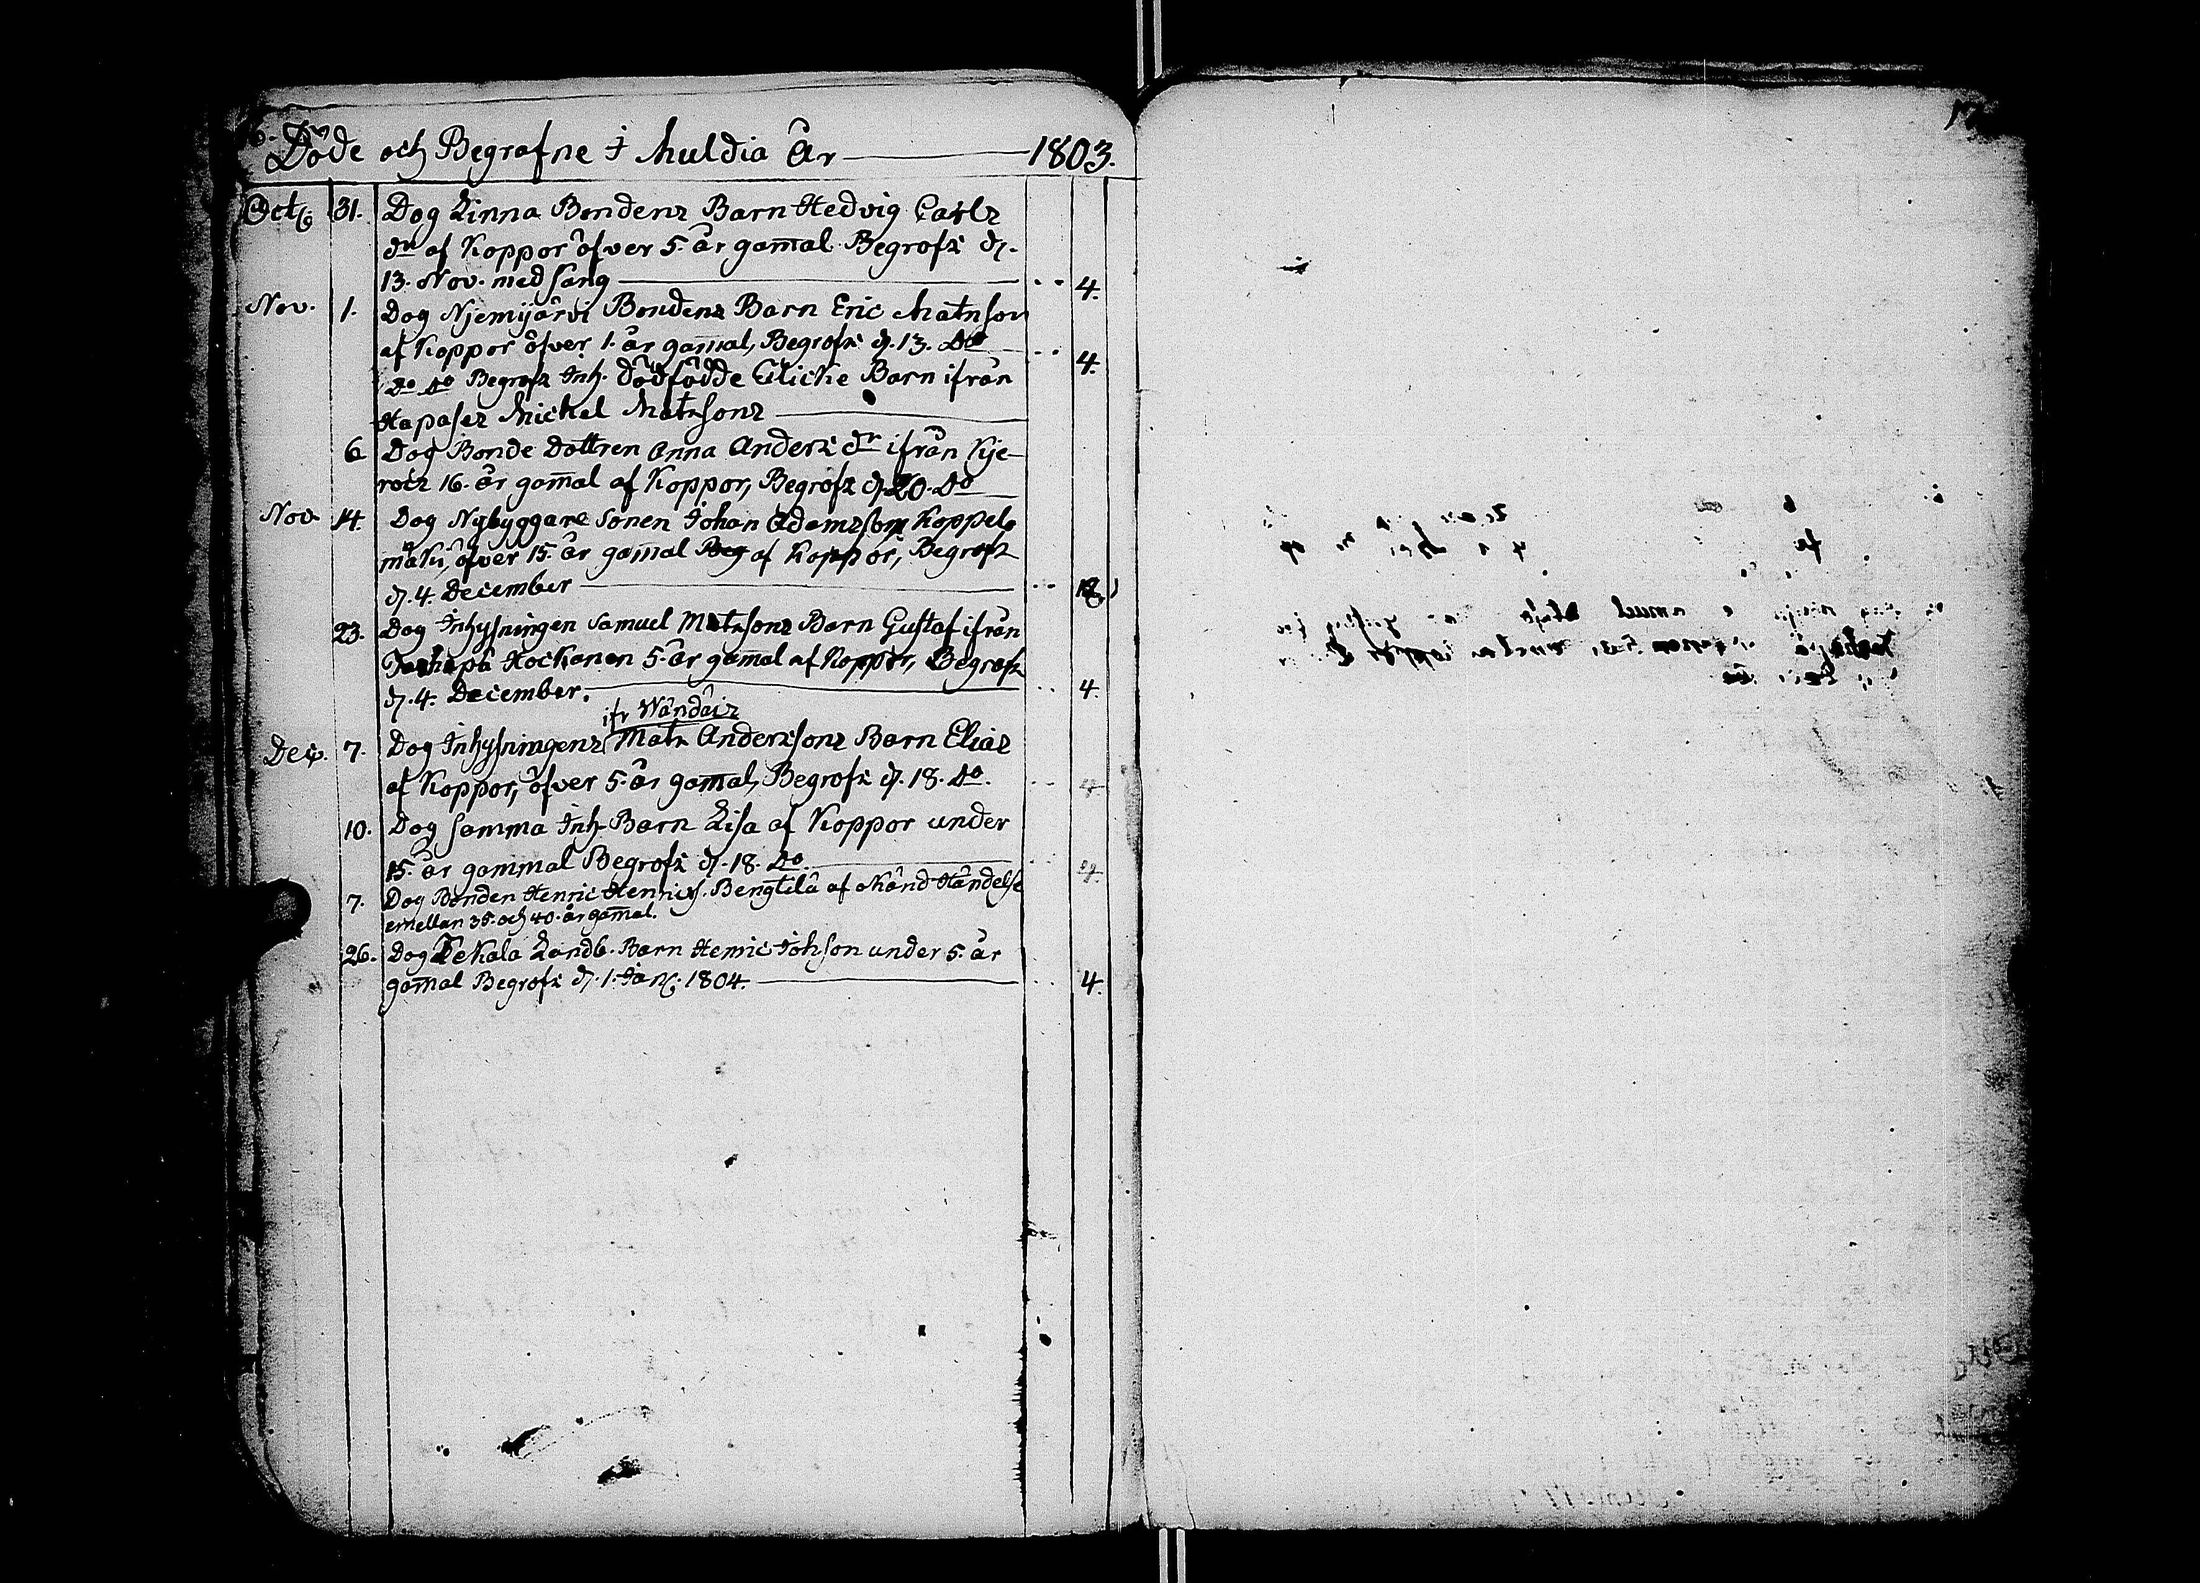 6.
Döde och Begrafne i Muldia År 1803.
Octb 31. Dog Linna Bondens Barn Hedvig Carls
dr af Koppor öfver 5. år gam̄al Begrofs d.
13. Nov. med sang 4.
Nov. 1. Dog Njemijärvi Bondens Barn Eric Matsson
af Koppor öfver 1. år gam̄al, Begrofs d. 13. do 4.
do do Begrofs Inh. dödfödde Barn ifrån
Hapasez Michel Matssons
6 Dog Bonde Dottren Anna Anders dr ifrån Kje-
rois 16. år gam̄al af Koppor, Begrofs d. 20. do
Nov 14. Dog Nybyggare Sonen Johan Adamsson Koppelo
mäki, öfver 15. år gam̄al Beg af Koppor, Begrofs
d. 4. December
23. Dog Inhysningen Samuel Matssons Barn Gustaf ifrån
på Hockanen 5. år gam̄al af Koppor, Begrofs
d. 4. December. 4.
ifr Wändäis
Dec. 7. Dog Inhysningens Mats Anderssons Barn Elias
af Koppor, öfver 5. år gam̄al, Begrofs d. 18. do. 4
10. Dog samma Inh. Barn Lisa af Koppor under
15. år gammal Begrofs d. 18. do. 4.
7. Dog Bonden Henric Henrics. Bengtilä af Nånd Händelse
emellan 35. och 40. år gam̄al.
26. Dog Tekala Landb. Barn Henric Johsson under 5. år
gam̄al Begrofs d. 1. Jan. 1804. 4.